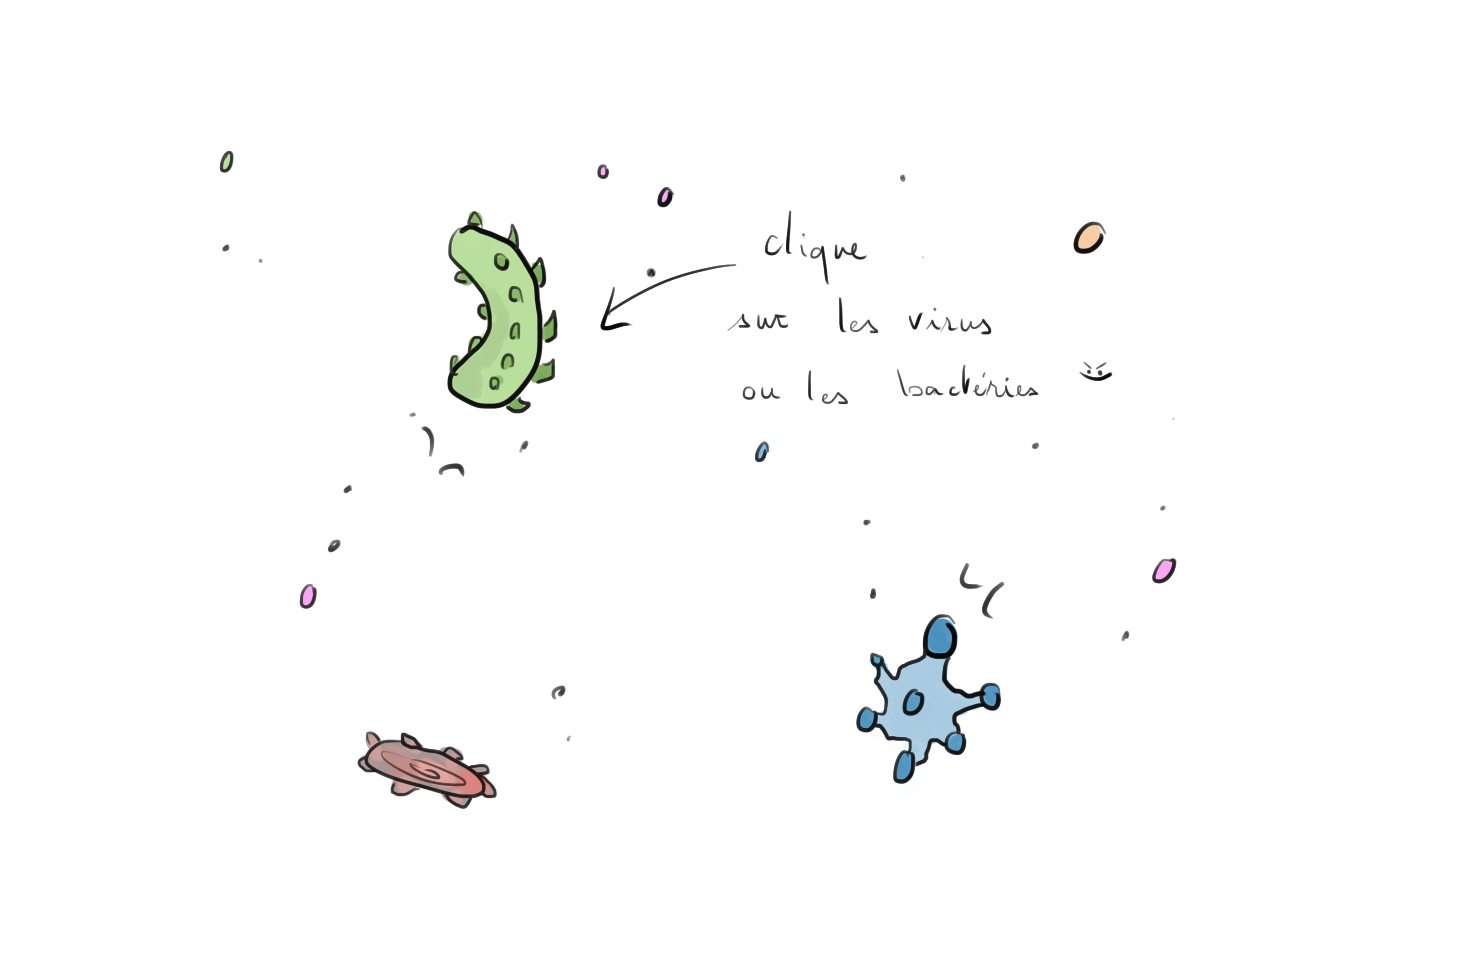 clique
sur les virus
ou les bactéries